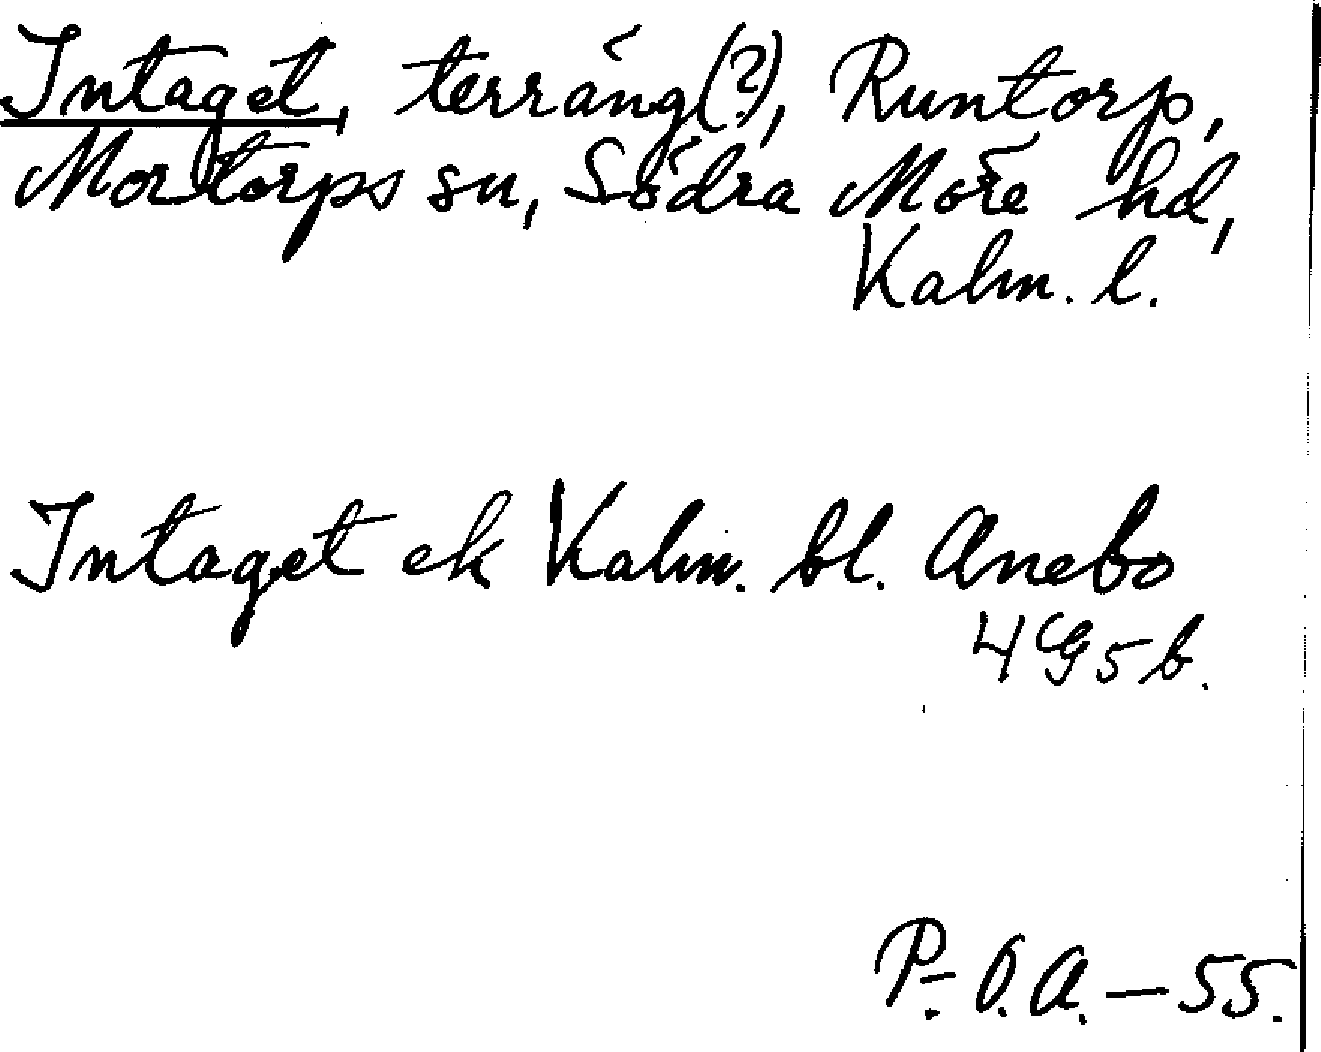 Intaget, terräng(?), Runtorp,
Mortorps sn, Södra Möre hd,
Kalm. l.
Intaget ek Kalm. bl. Anebo
4G5b.
P.-O.A.—55.